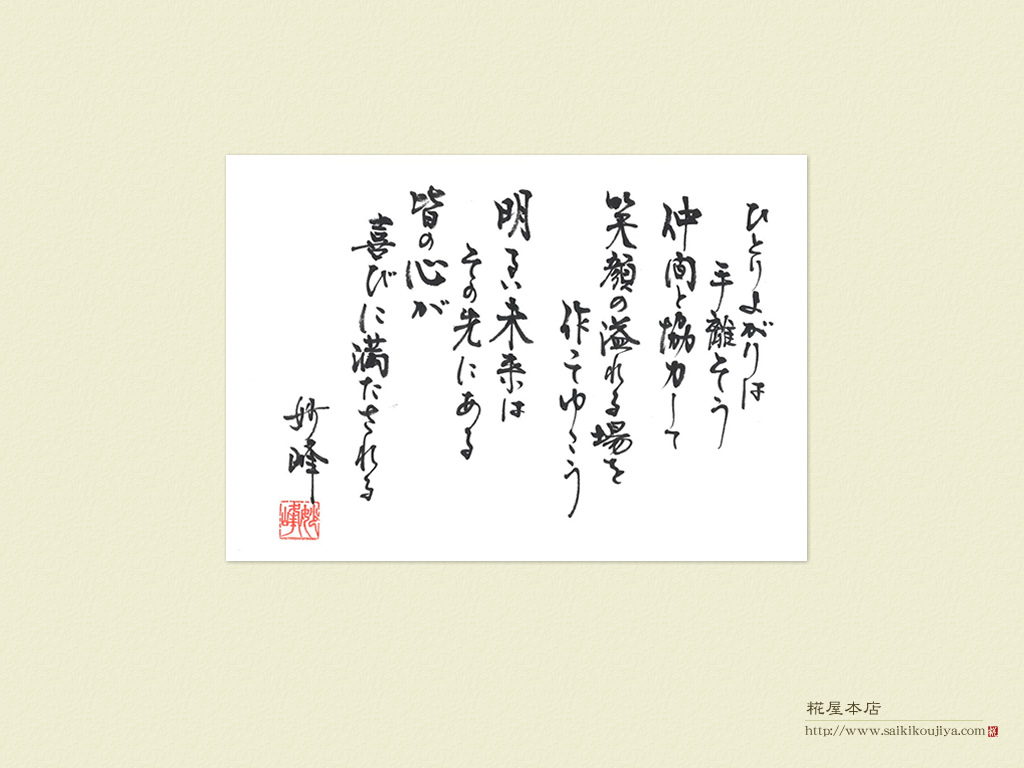 ひとりよがりは
手離そう
仲間と協力して
笑顔の溢れる場を
作ってゆこう
明るい未来は
その先にある
皆の心が
喜びに満たされる
妙峰
妙峰
糀屋本店
http://www.saikikoujiya.com